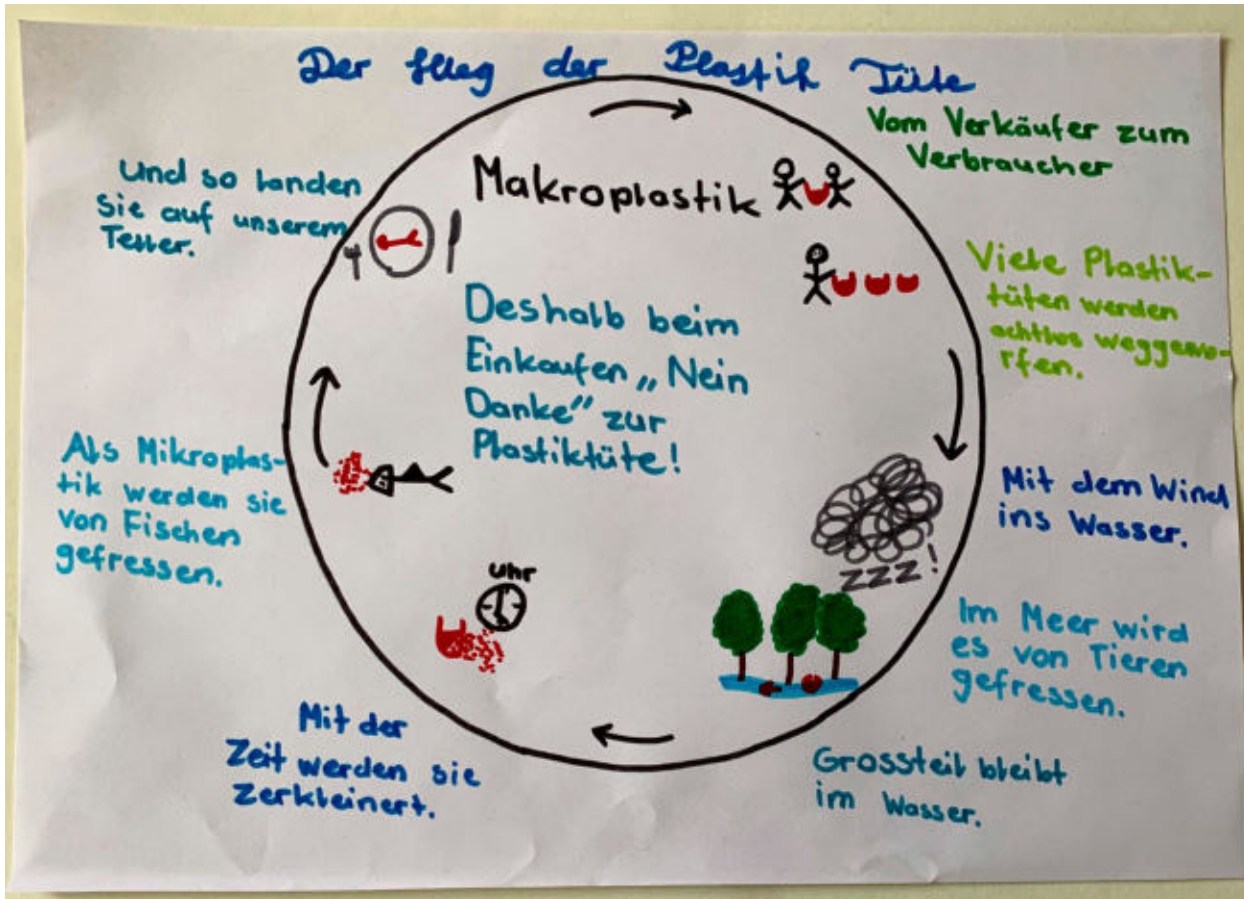 Der Flug der Plastik Tüte
Makroplastik
Vom Verkäufer zum
Verbraucher
Viele Plastik-
tüten werden
achtlos weggewo-
rfen.
Mit dem Wind
ins Wasser.
zzz!
Im Meer wird
es von Tieren
gefressen.
Grossteil bleibt
im Wasser.
Mit der
Zeit werden sie
zerkleinert.
Uhr
Als Mikroplas-
tik werden sie
von Fischen
gefressen.
Und so landen
sie auf unserem
Teller.
Deshalb beim
Einkaufen „Nein
Danke" zur
Plastiktüte!